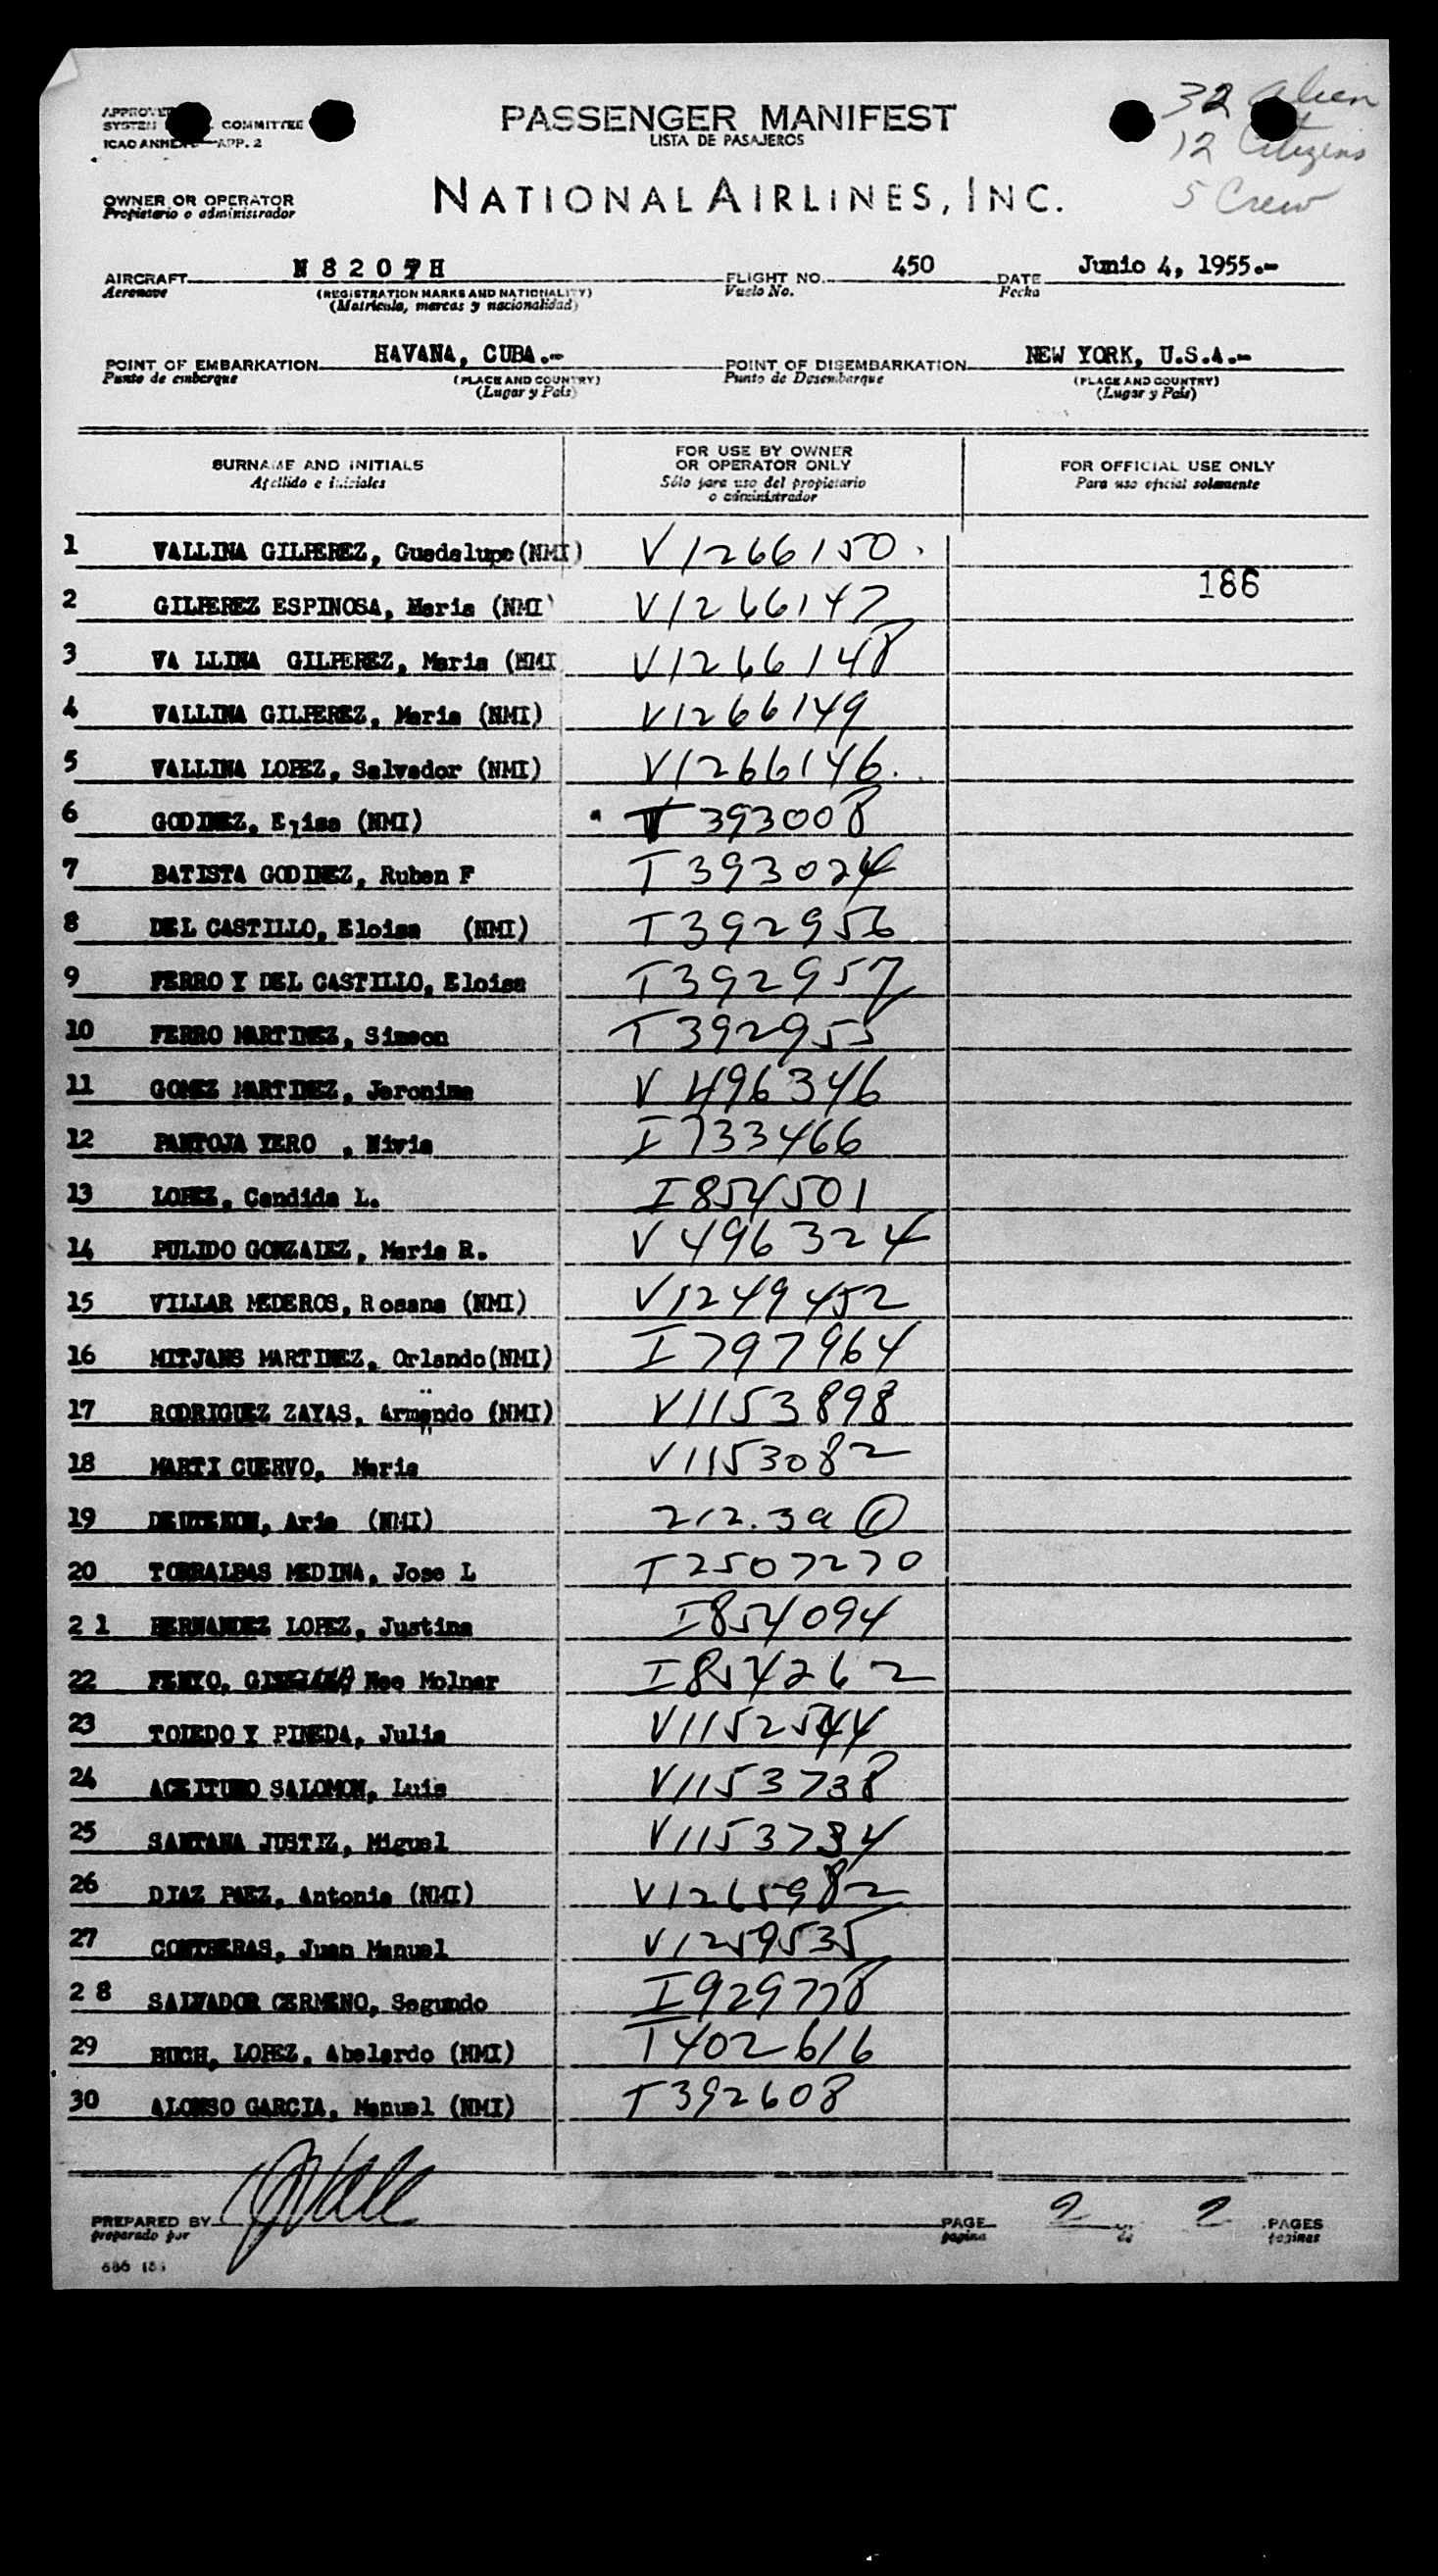 32 Alien
12 Citizens
5 Crew
SYSTEM COMMITTEE
ICAO ANNEX APP. 2
PASSENGER MANIFEST
LISTA DE PASAJEROS
OWNER OR OPERATOR
Propietario o administrador
NATIONAL AIRLINES, INC.
AIRCRAFT N8207H FLIGHT NO. 450 DATE Junio 4, 1955.-
Aeronave (REGISTRATION MARKS AND NATIONALITY) Vuelo No. Fecha
(Matrícula, marcas y nacionalidad)
POINT OF EMBARKATION HAVANA, CUBA.- POINT OF DISEMBARKATION NEW YORK, U.S.A.-
Punto de embarque (PLACE AND COUNTRY) Punto de Desembarque (PLACE AND COUNTRY)
(Lugar y País) (Lugar y País)
SURNAME AND INITIALS FOR USE BY OWNER OR OPERATOR ONLY FOR OFFICIAL USE ONLY
Apellido e iniciales Sólo para uso del propietario o administrador Para uso oficial solamente
1 VALLINA GILPEREZ, Guadalupe(NMI) V1266150.
186
2 GILPEREZ ESPINOSA, Maria (NMI) V1266147
3 VA LLINA GILPEREZ, Maria (NMI V1266148
4 VALLINA GILPEREZ, Maria (NMI) V1266149
5 VALLINA LOPEZ, Salvador (NMI) V1266146.
6 GODINEZ, Elisa (NMI) T393008
7 BATISTA GODINEZ, Ruben F T393024
8 DEL CASTILLO, Eloisa (NMI) T392956
9 FERRO Y DEL CASTILLO, Eloisa T392957
10 FERRO MARTINEZ, Simeon T392955
11 GOMEZ MARTINEZ, Jeronima V496346
12 PANTOJA YERO , Nivia I733466
13 LOPEZ, Candida L. I854501
14 PULIDO GONZALEZ, Maria R. V496324
15 VILLAR MEDEROS, Rosana (NMI) V1249452
16 MITJANS MARTINEZ, Orlando(NMI) I797964
17 RODRIGUEZ ZAYAS, Armando (NMI) V1153898
18 MARTI CUERVO, Maria V1153082
19 DEUTEKOM, Arie (NMI) 212.3a ①
20 TORRALBAS MEDINA, Jose L T2507270
21 HERNANDEZ LOPEZ, Justina I854094
22 FENYO, Nee Molnar I854262
23 TOLEDO Y PINEDA, Julia V1152544
24 ACEITUNO SALOMON, Luis V1153738
25 SANTANA JUSTIZ, Miguel V1153734
26 DIAZ PAEZ, Antonia (NMI) V1265982
27 CONTRERAS, Juan Manuel V1259535
28 SALVADOR CERMENO, Segundo I929778
29 BUCH, LOPEZ, Abelardo (NMI) T402616
30 ALONSO GARCIA, Manuel (NMI) T392608
PREPARED BY PAGE 2 2 PAGES
preparado por pagina de paginas